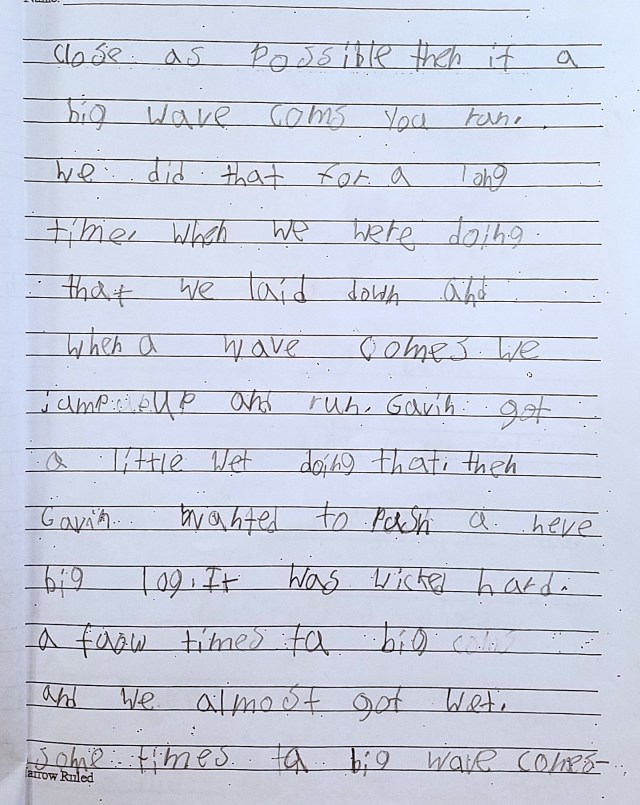 Name:
close as possible then if a
big wave coms you run.
we did that for a long
time. when we were doing
that we laid down and
when a wave comes we
jump up and run. Gavin got
a little wet doing that. then
Gavin wanted to pash a heve
big log. It was wicked hard.
a faow times ta big coms
and we almost got wet.
some times ta big wave comes
arrow Ruled